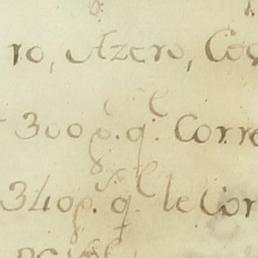 ro, Azero, Co
300 p. q. Corre
340 p. q. le Cor